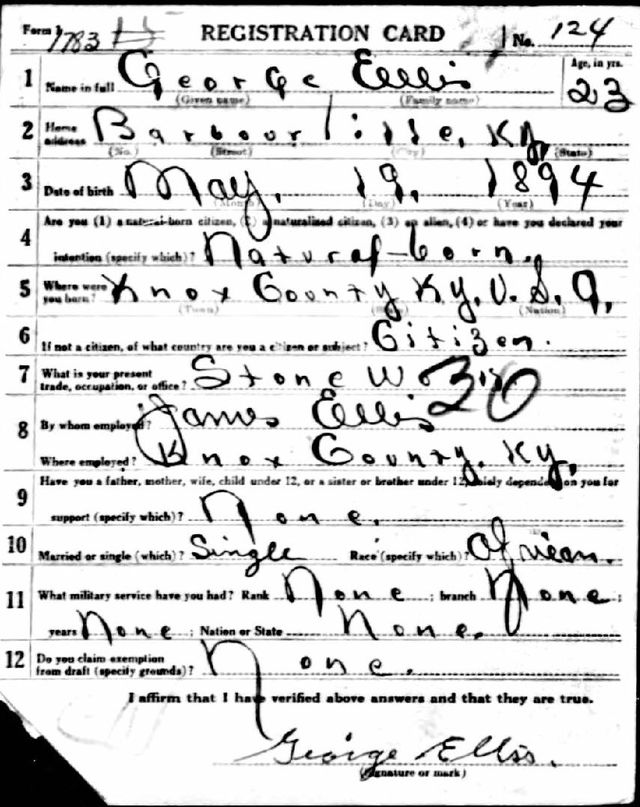 Form 1 1783 REGISTRATION CARD No. 124
1 Name in full George Ellis Age, in yrs. 23
(Given name) (Family name)
2 Home address Barbourville, Ky,
(No.) (Street) (City) (State)
3 Date of birth May, 19, 1894
(Month) (Day) (Year)
Are you (1) a natural-born citizen, (2) a naturalized citizen, (3) an alien, (4) or have you declared your
4 intention (specify which)? Natural-born.
5 Where were you born? Knox County Ky, U.S.A,
(Town) (State) (Nation)
6 If not a citizen, of what country are you a citizen or subject? Citizen.
7 What is your present trade, occupation, or office? Stone 30
8 By whom employed? James Ellis
Where employed? Knox County, Ky,
9 Have you a father, mother, wife, child under 12, or a sister or brother under 12, solely dependent on you for
support (specify which)? None.
10 Married or single (which)? Single Race (specify which)? African.
11 What military service have you had? Rank None; branch None;
years None; Nation or State None.
12 Do you claim exemption from draft (specify grounds)? None.
I affirm that I have verified above answers and that they are true.
George Ellis.
(Signature or mark)